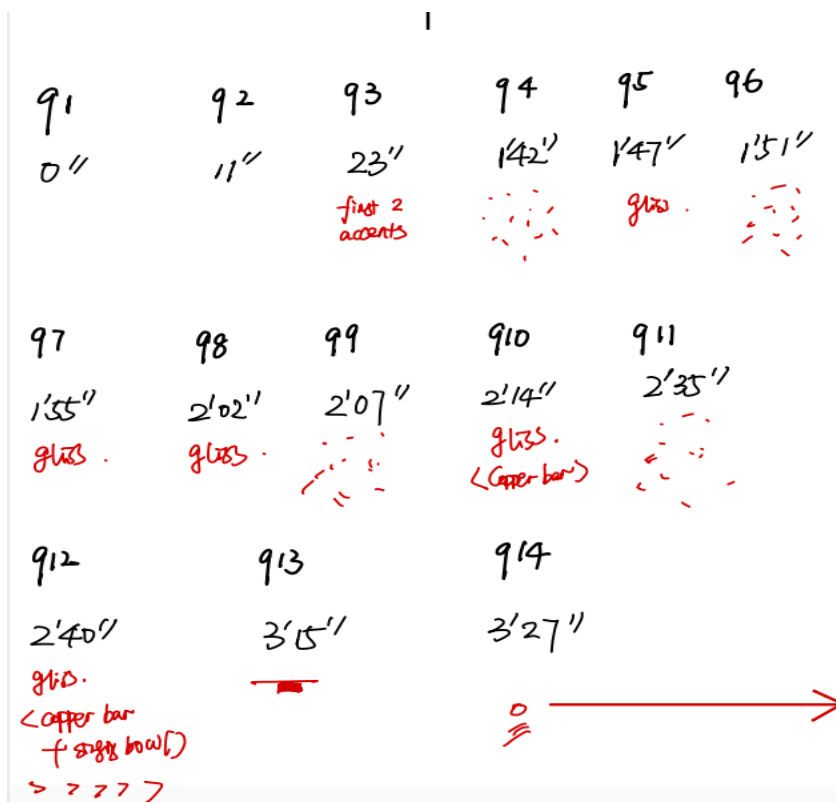 I
q1 q2 q3 q4 q5 q6
0" 11" 23" 1'42" 1'47" 1'51"
first 2 gliss.
accents
q7 q8 q9 q10 q11
1'55" 2'02" 2'07" 2'14" 2'35"
gliss. gliss. gliss.
<copper bar>
q12 q13 q14
2'40" 3'15" 3'27"
gliss.
<copper bar
+ bowl>
> > > > >